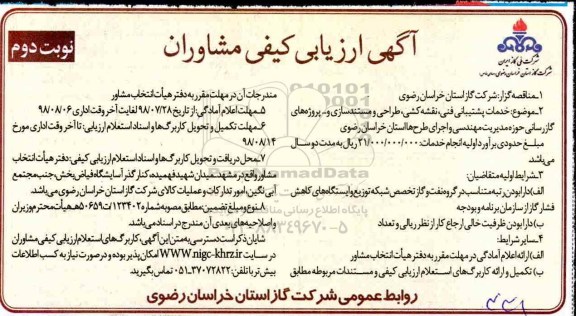 آگهی ارزیابی کیفی مشاوران
نوبت دوم
شرکت ملی گاز ایران
شرکت گاز استان خراسان رضوی
۱ـ مناقصه گزار: شرکت گاز استان خراسان رضوی
۲ـ موضوع: خدمات پشتیبانی فنی، نقشه کشی، طراحی و مستندسازی و... پروژه‌های
گازرسانی حوزه مدیریت مهندسی و اجرای طرح‌ها استان خراسان رضوی
مبلغ حدودی برآورد اولیه انجام خدمات: ۲۱/۰۰۰/۰۰۰/۰۰۰ ریال به مدت دو سال
می‌باشد
۳ـ شرایط اولیه متقاضیان:
الف) دارا بودن رتبه متناسب در گروه نفت و گاز تخصص شبکه توزیع و ایستگاه‌های کاهش
فشار گاز از سازمان برنامه و بودجه
ب) دارا بودن ظرفیت خالی ارجاع کار از نظر ریالی و تعداد
۴ـ سایر شرایط:
الف) ارائه اعلام آمادگی در مهلت مقرر به دفتر هیأت انتخاب مشاور
ب) تکمیل و ارائه کاربرگ‌های استعلام ارزیابی کیفی و مستندات مربوطه مطابق
مندرجات آن در مهلت مقرر به دفتر هیأت انتخاب مشاور
۵ـ مهلت اعلام آمادگی: از تاریخ ۹۸/۰۷/۲۸ لغایت آخر وقت اداری ۹۸/۰۸/۰۶
۶ـ مهلت تکمیل و تحویل کاربرگ‌ها و اسناد استعلام ارزیابی: تا آخر وقت اداری مورخ
۹۸/۰۸/۱۴
۷ـ محل دریافت و تحویل کاربرگ‌ها و اسناد استعلام ارزیابی کیفی: دفتر هیأت انتخاب
مشاور واقع در مشهد میدان شهید فهمیده کنار گذر آسایشگاه فیاض بخش، جنب مجتمع
آبی نگین، امور تدارکات و عملیات کالای شرکت گاز استان خراسان رضوی می‌باشد.
۸ـ نوع و مبلغ تضمین: مطابق مصوبه شماره ۱۲۳۴۰۲/ت۵۰۶۵۹هـ هیأت محترم وزیران
و اصلاحیه‌های بعدی آن مندرج در اسناد می‌باشد.
شایان ذکر است دسترسی به متن این آگهی، کاربرگ‌های استعلام ارزیابی کیفی مشاوران
در سایت WWW.nigc-khrz.ir امکان پذیر بوده و در صورت نیاز به کسب اطلاعات
بیش‌تر با تلفن: ۳۷۰۷۲۸۲۲-۰۵۱ تماس بگیرید.
روابط عمومی شرکت گاز استان خراسان رضوی